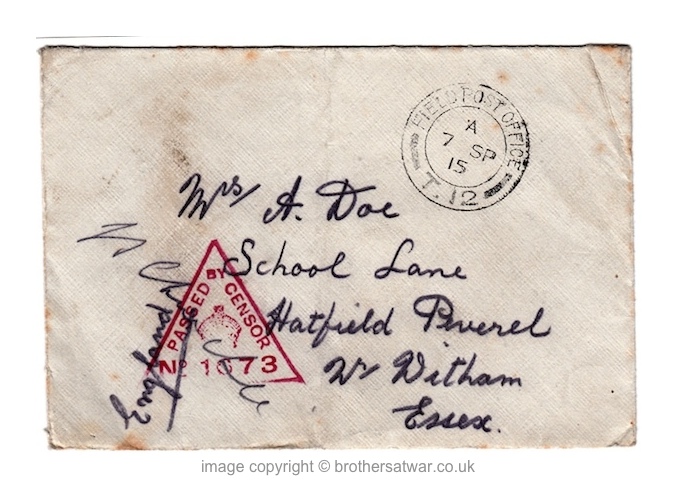 FIELD POST OFFICE
A
7 SP
15
T.12
Mrs A. Doe
School Lane
Hatfield Peverel
Nr Witham
Essex.
England
PASSED BY CENSOR
No 1673
image copyright © brothersatwar.co.uk